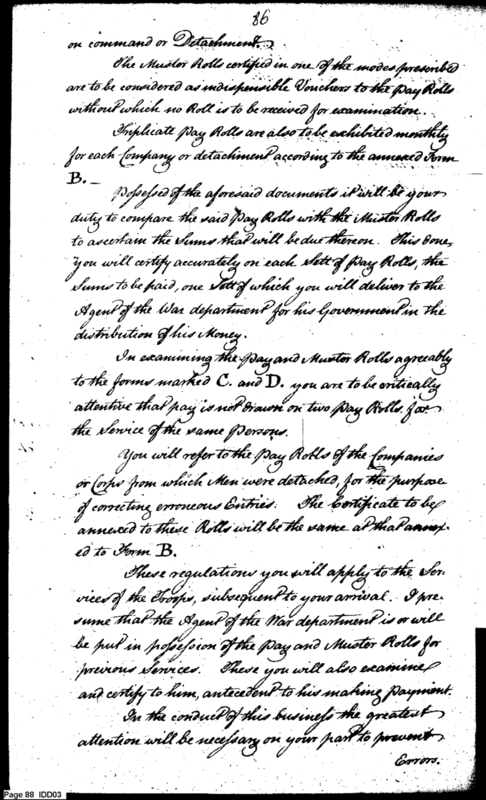 86
on command or Detachment.
The Muster Rolls certified in one of the modes prescribed
are to be considered as indispensible Vouchers to the Pay Rolls
without which no Roll is to be received for examination.
Triplicate Pay Rolls are also to be exhibited monthly
for each Company or detachment according to the annexed Form
B.
Possessed of the aforesaid documents it will be your
duty to compare the said Pay Rolls with the Muster Rolls
to ascertain the Sums that will be due thereon. This done,
you will certify accurately on each Sett of Pay Rolls, the
Sums to be paid, one Sett of which you will deliver to the
Agent of the War department for his Government in the
distribution of his Money.
In examining the Pay and Muster Rolls agreeably
to the forms marked C. and D. you are to be critically
attentive that pay is not drawn on two Pay Rolls for
the Service of the same Persons.
You will refer to the Pay Rolls of the Companies
or Corps from which Men were detached, for the purpose
of correcting erroneous Entries. The Certificate to be
annexed to these Rolls will be the same as that annex-
ed to Form B.
These regulations you will apply to the Ser-
vices of the Troops, subsequent to your arrival. I pre-
sume that the Agent of the War department is or will
be put in possession of the Pay and Muster Rolls for
previous Services. These you will also examine
and certify to him, antecedent to his making Payment.
In the conduct of this business the greatest
attention will be necessary on your part to prevent
Errors.
Page 88 IDD03